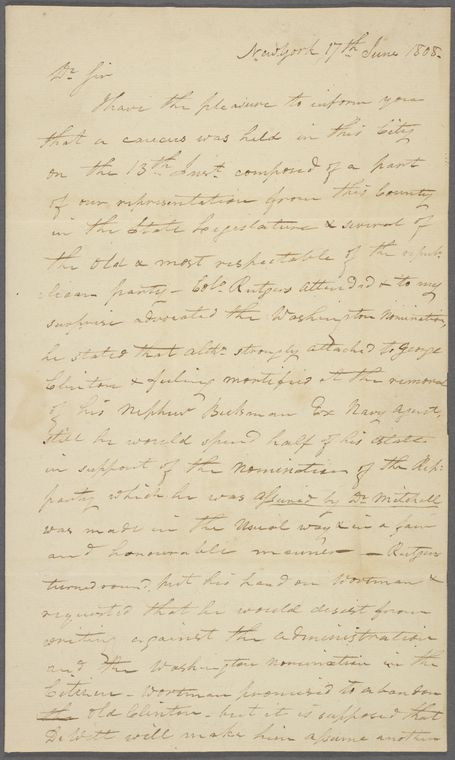 New York 17th June 1808.
Dr Sir
I have the pleasure to inform you
that a caucus was held in this City
on the 13th Inst composed of a part
of our representation from this County
in the State Legislature & several of
the Old & most respectable of the repub-
lican party – Colo. Rutgers attended & to my
surprise advocated the Washington Nomination,
he stated that altho. strongly attached to George
Clinton & feeling mortified at the removal
of his Nephew Beekman Ex Navy Agent,
still he would spend half of his estate
in support of the nomination of the Rep:
party which he was assured by Dr. Mitchell
was made in the usual way & in a fair
and honourable manner – Rutgers
turned round, put his hand on Wortman &
requested that he would desist from
writing against the administration
and the Washington nomination in the
Citizen – Wortman promised to abandon
the old Clinton – but it is supposed that
DeWitt will make him assume another